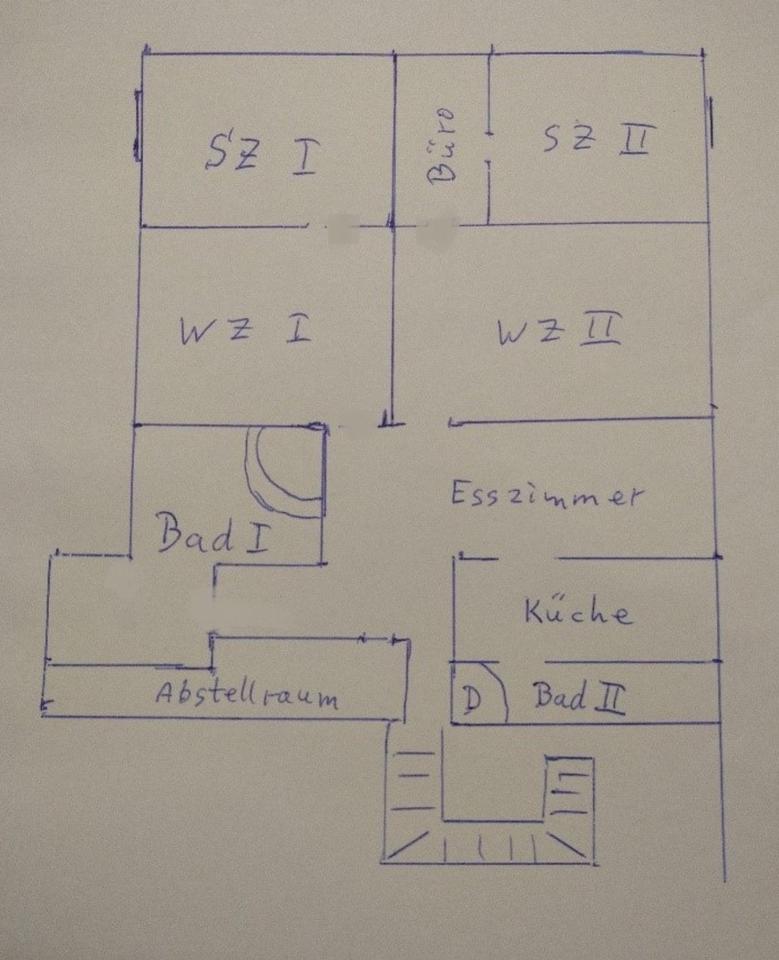 SZ I
Büro
SZ II
WZ I
WZ II
Esszimmer
Bad I
Küche
Abstellraum
D
Bad II